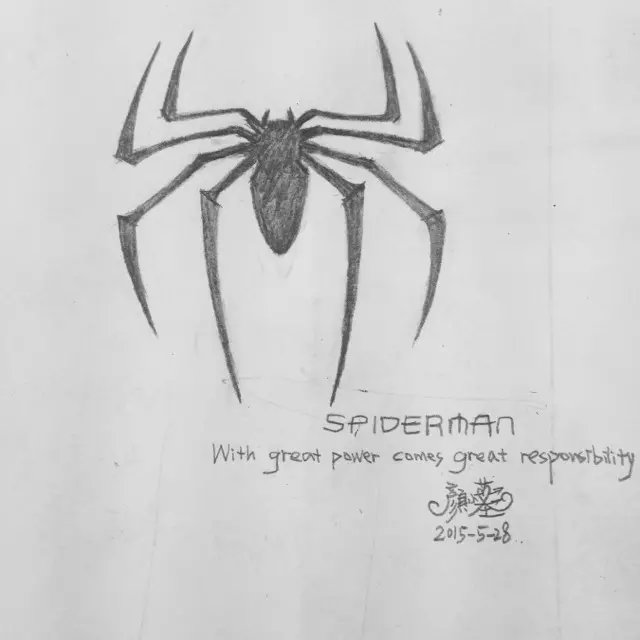 SPIDERMAN
With great power comes great responsibility
2015-5-28